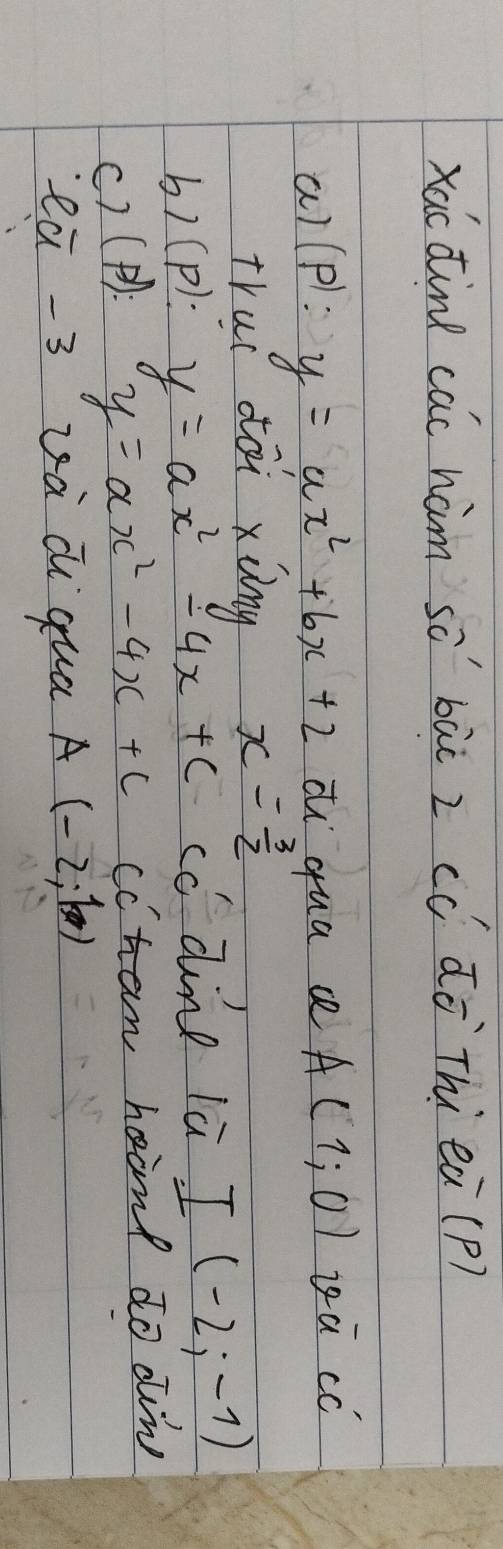 Xác định các hàm số bậc 2 có đồ thị là (P)
a) (P): y = ax² + bx + 2 đi qua A(1; 0) và có
trục đối xứng x = 3/2
b) (P): y = ax² - 4x + c có đỉnh là I (-2; -1)
c) (P): y = ax² - 4x + c có hoành độ đỉnh
là -3 và đi qua A (-2; 1)